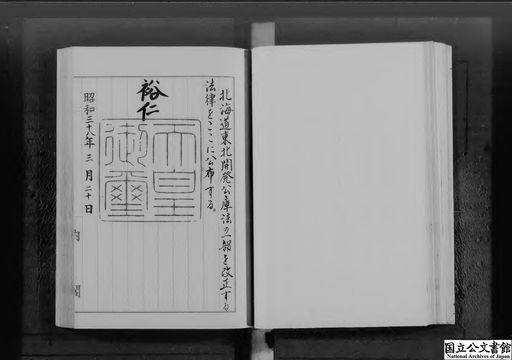 北海道東北開発公庫法の一部を改正する
法律をここに公布する。
裕仁
天皇
御璽
昭和三十八年三月二十日
内閣
国立公文書館
National Archives of Japan